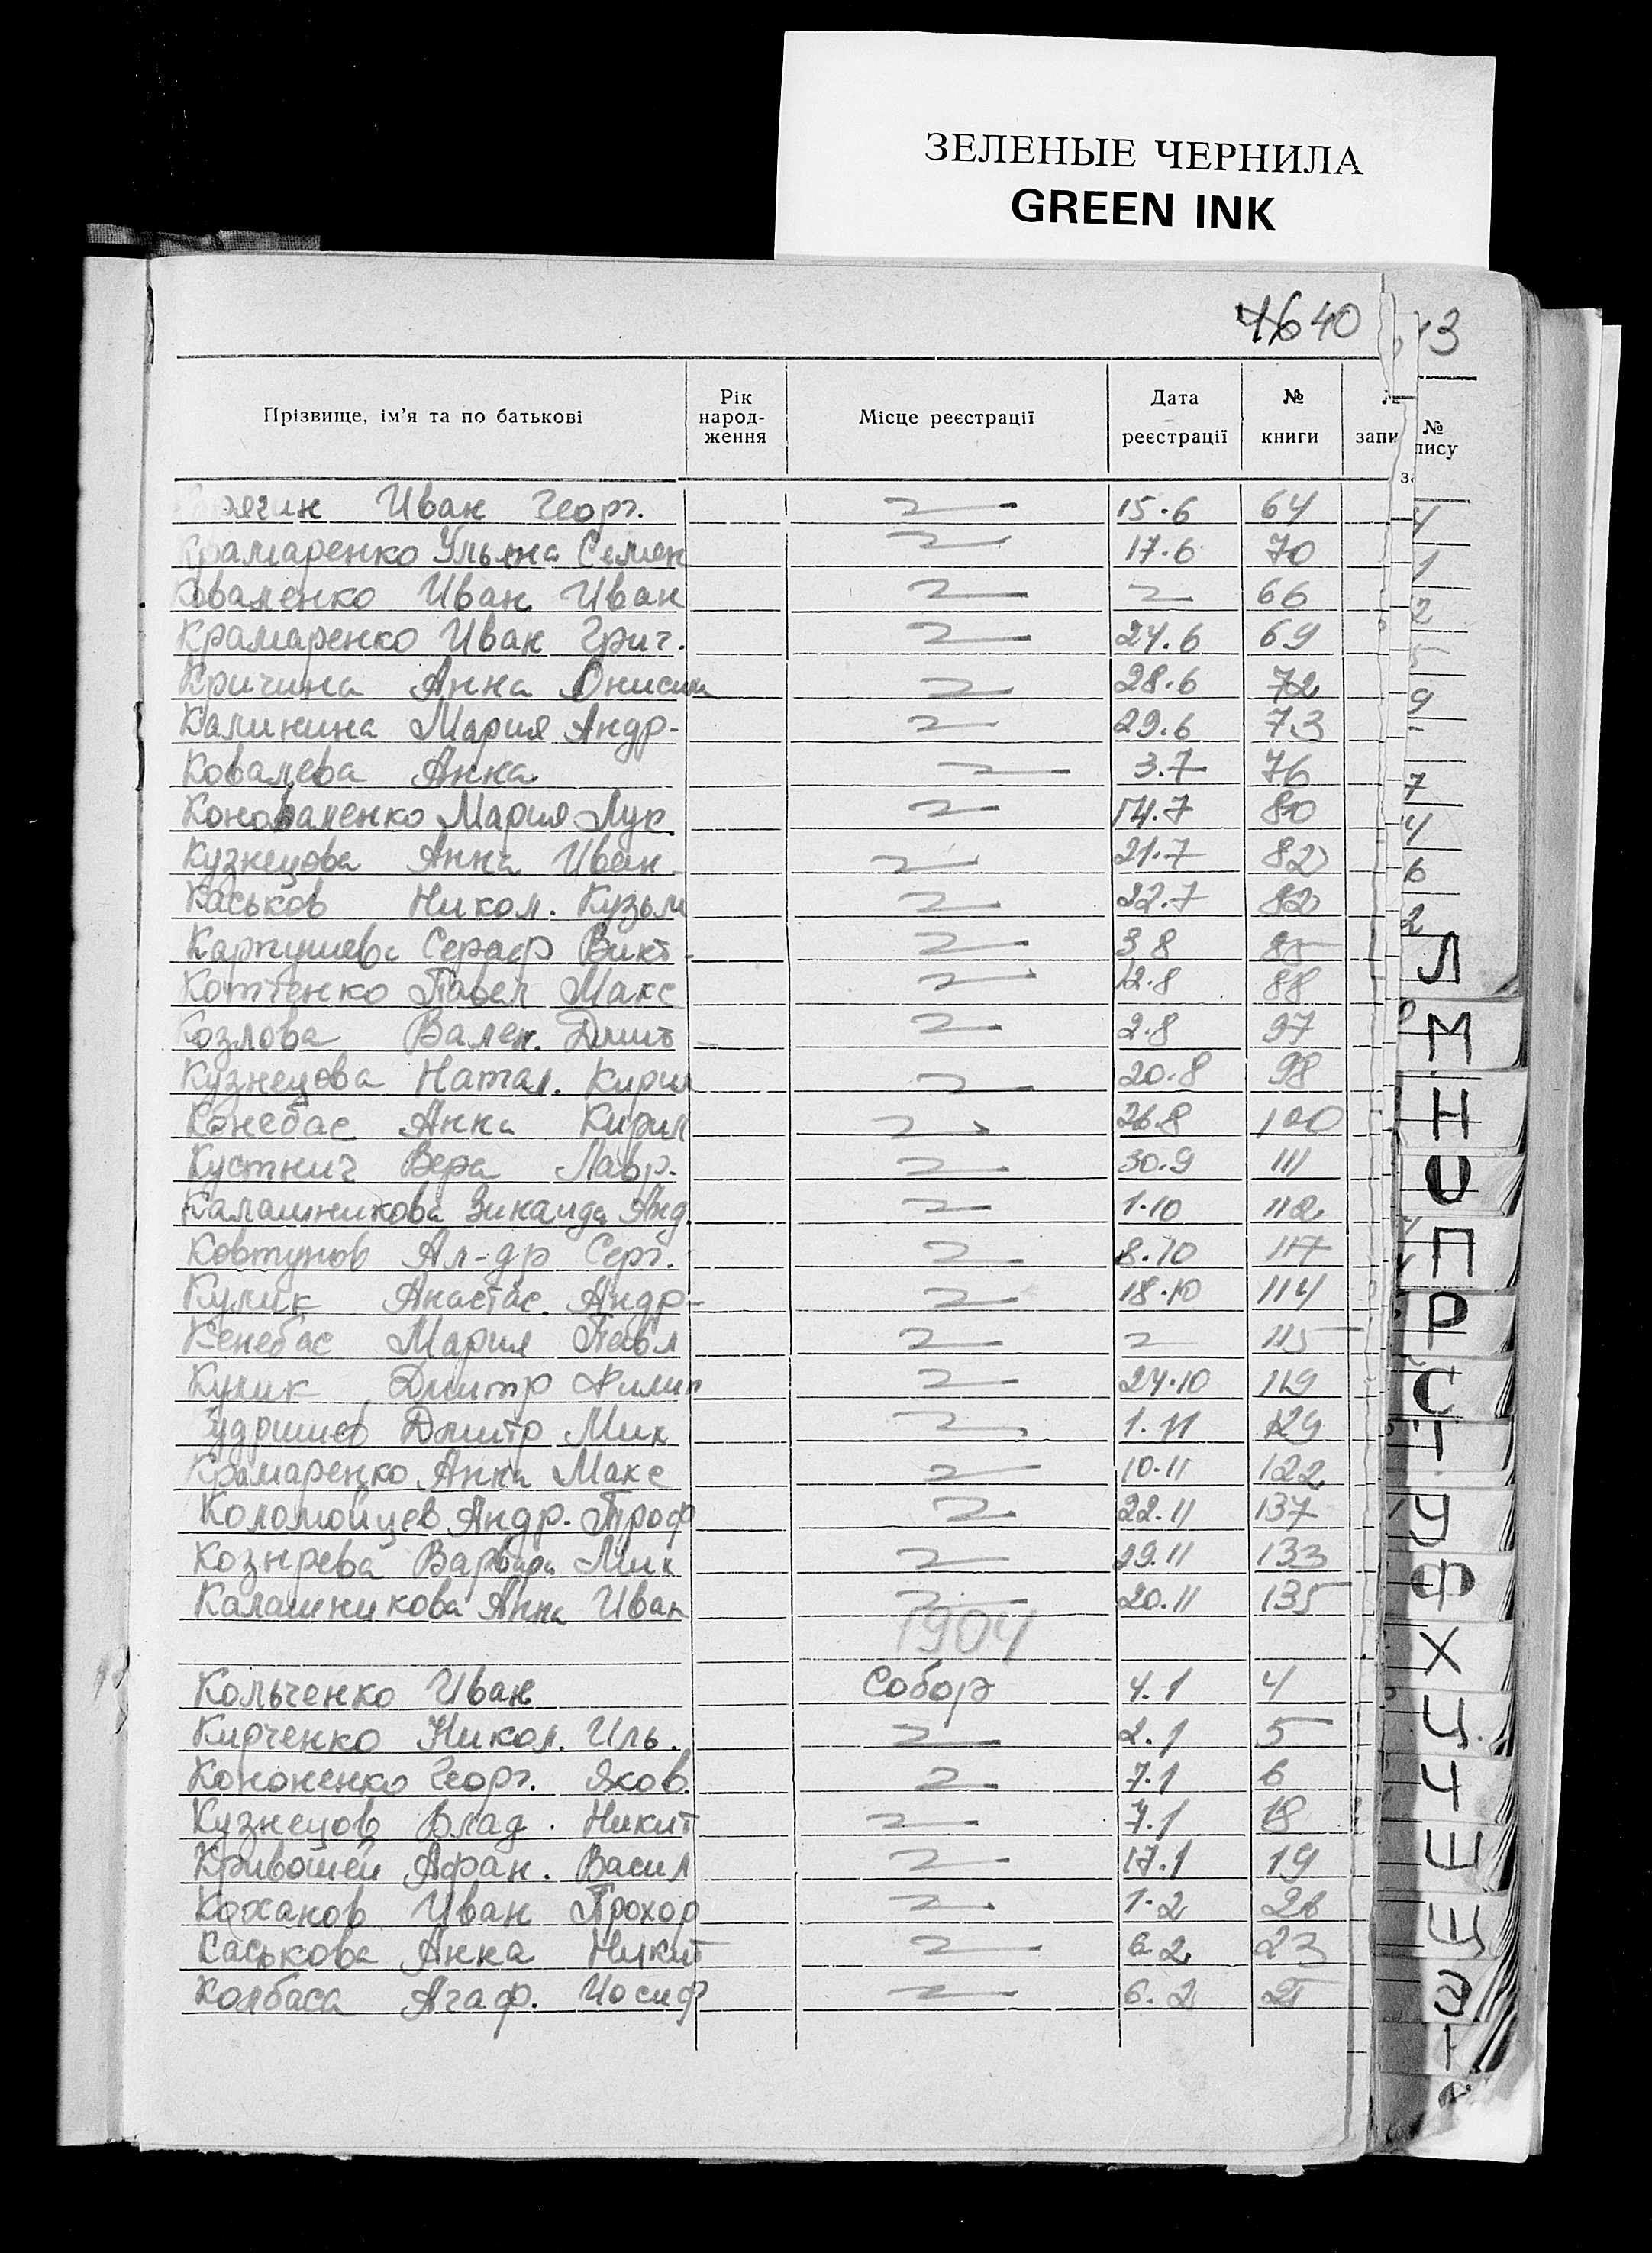 ЗЕЛЕНЫЕ ЧЕРНИЛА
GREEN INK
40
Прізвище, ім'я та по батькові Рік народ-ження Місце реєстрації Дата реєстрації № книги № запи
Иван Георг. 15.6 64
Крамаренко Ульяна Семен 17.6 70
Коваленко Иван Иван 66
Крамаренко Иван Григ. 24.6 69
Кричина Анна Онисим 28.6 72
Калинина Мария Андр- 29.6 73
Ковалева Анна 3.7 76
Коноваленко Мария Лук. 14.7 80
Кузнецова Анна Иван 21.7 82
Каськов Никол. Кузьм 22.7 82
Карпушева Сераф Викт- 3.8 85
Павел Макс 12.8 88
Козлова Вален. Дмит 2.8 97
Кузнецова Натал. Кирил 20.8 98
Конебас Анна Кирил 26.8 100
Кустнич Вера Лавр. 30.9 111
Калашникова Зинаида Анд. 1.10 112
Ковтунов Ал-др Серг. 8.10 117
Кулик Анастас. Андр- 18.10 114
Кенебас Мария Павл 115
Кулик Дмитр Филип 24.10 119
Дмитр Мих 1.11 129
Крамаренко Анна Макс 10.11 122
Коломойцев Андр. Троф 22.11 137
Козырева Варвара Мих 29.11 133
Калашникова Анна Иван 20.11 135
1904
Кольченко Иван Собор 4.1 4
Кирченко Никол. Иль. 2.1 5
Кононенко Георг. Яков. 7.1 6
Кузнецов Влад. Никит 7.1 18
Кривошей Афан. Васил 17.1 19
Коханов Иван Прохор 1.2
Каськова Анна Никит 6.2 23
Колбаса Агаф. Иосиф 6.2
№
пису
Л
М
Н
О
П
Р
С
Т
У
Ф
Х
Ц
Ч
Ш
Щ